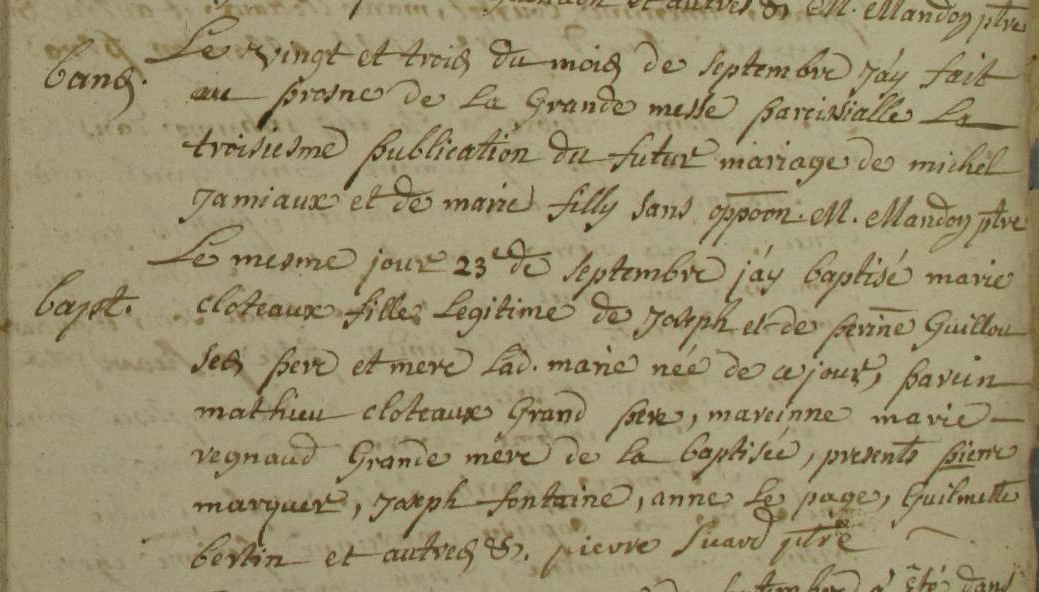 et autres &. M. Mandoy ptre
bans. Le vingt et trois du mois de septembre j'ay fait
au prosne de la Grande messe paroissialle La
troisiesme publication du futur mariage de michel
Jamiaux et de marie filly sans oppoon. M. Mandoy ptre
Le mesme jour 23e de septembre j'ay baptisé marie
bapt. cloteaux fille Legitime de Joseph et de perinne Guillou
ses pere et mere Lad. marie née de ce jour, parein
mathieu cloteaux Grand pere, mareinne marie
regnaud Grande mere de la baptisée, presents pierre
marquer, Joseph fontaine, anne Le page, Guilmette
bertin et autres &. pierre Suard ptre
septembre a été dans